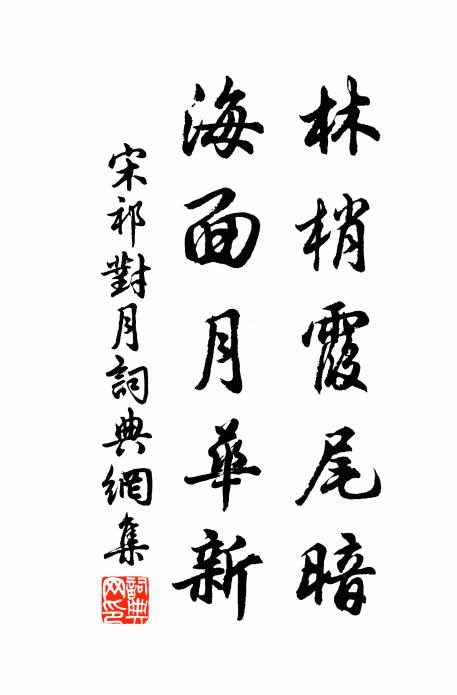 林梢霞尾暗
海面月華新
宋祁對月詞典網集
詞典網印